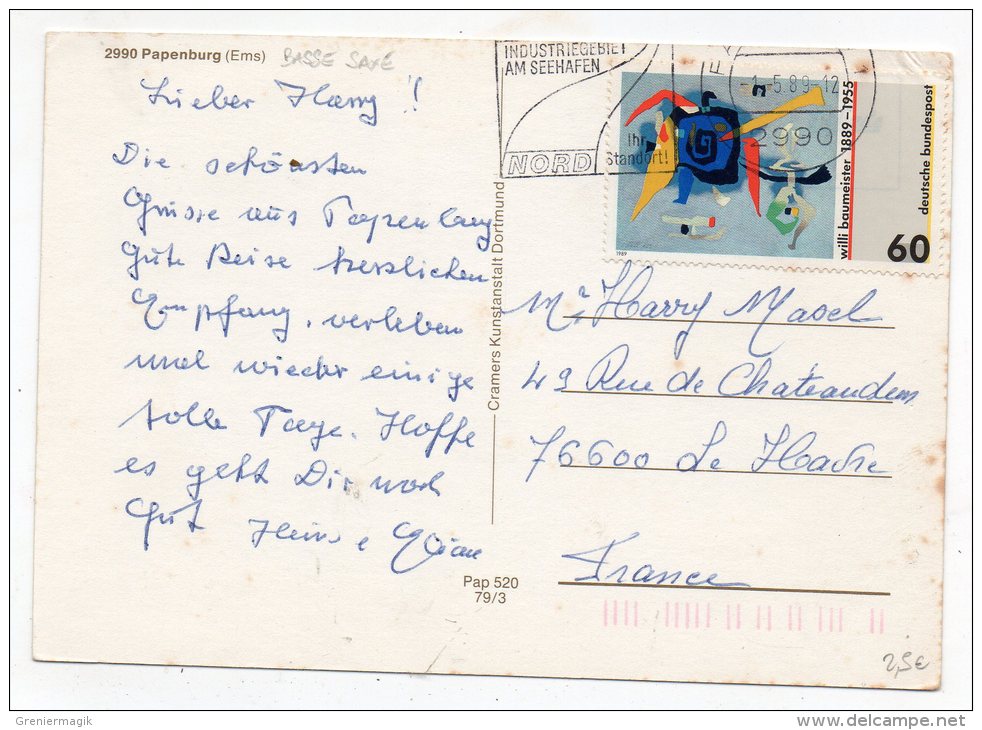 2990 Papenburg (Ems) BASSE SAXE
Lieber Harry !
Die schönsten
Grüsse aus Papenburg
Gute Reise herzlichen
Empfang, verleben
mal wieder einige
tolle Tage. Hoffe
es geht Dir noch
Gut Heinz e
Cramers Kunstanstalt Dortmund
Pap 520
79/3
INDUSTRIEGEBIET
AM SEEHAFEN
NORD
Ihr
Standort!
-1.-5.89-12
2990
1989
willi baumeister 1889-1955
deutsche bundespost
60
Mr Harry Masel
49 Rue de Chateaudun
76600 Le Havre
France
2,5€
Greniermagik
www.delcampe.net